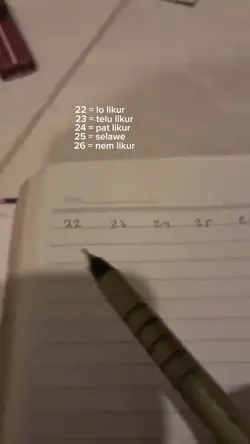 22 = lo likur
23 = telu likur
24 = pat likur
25 = selawe
26 = nem likur
22 23 24 25 2